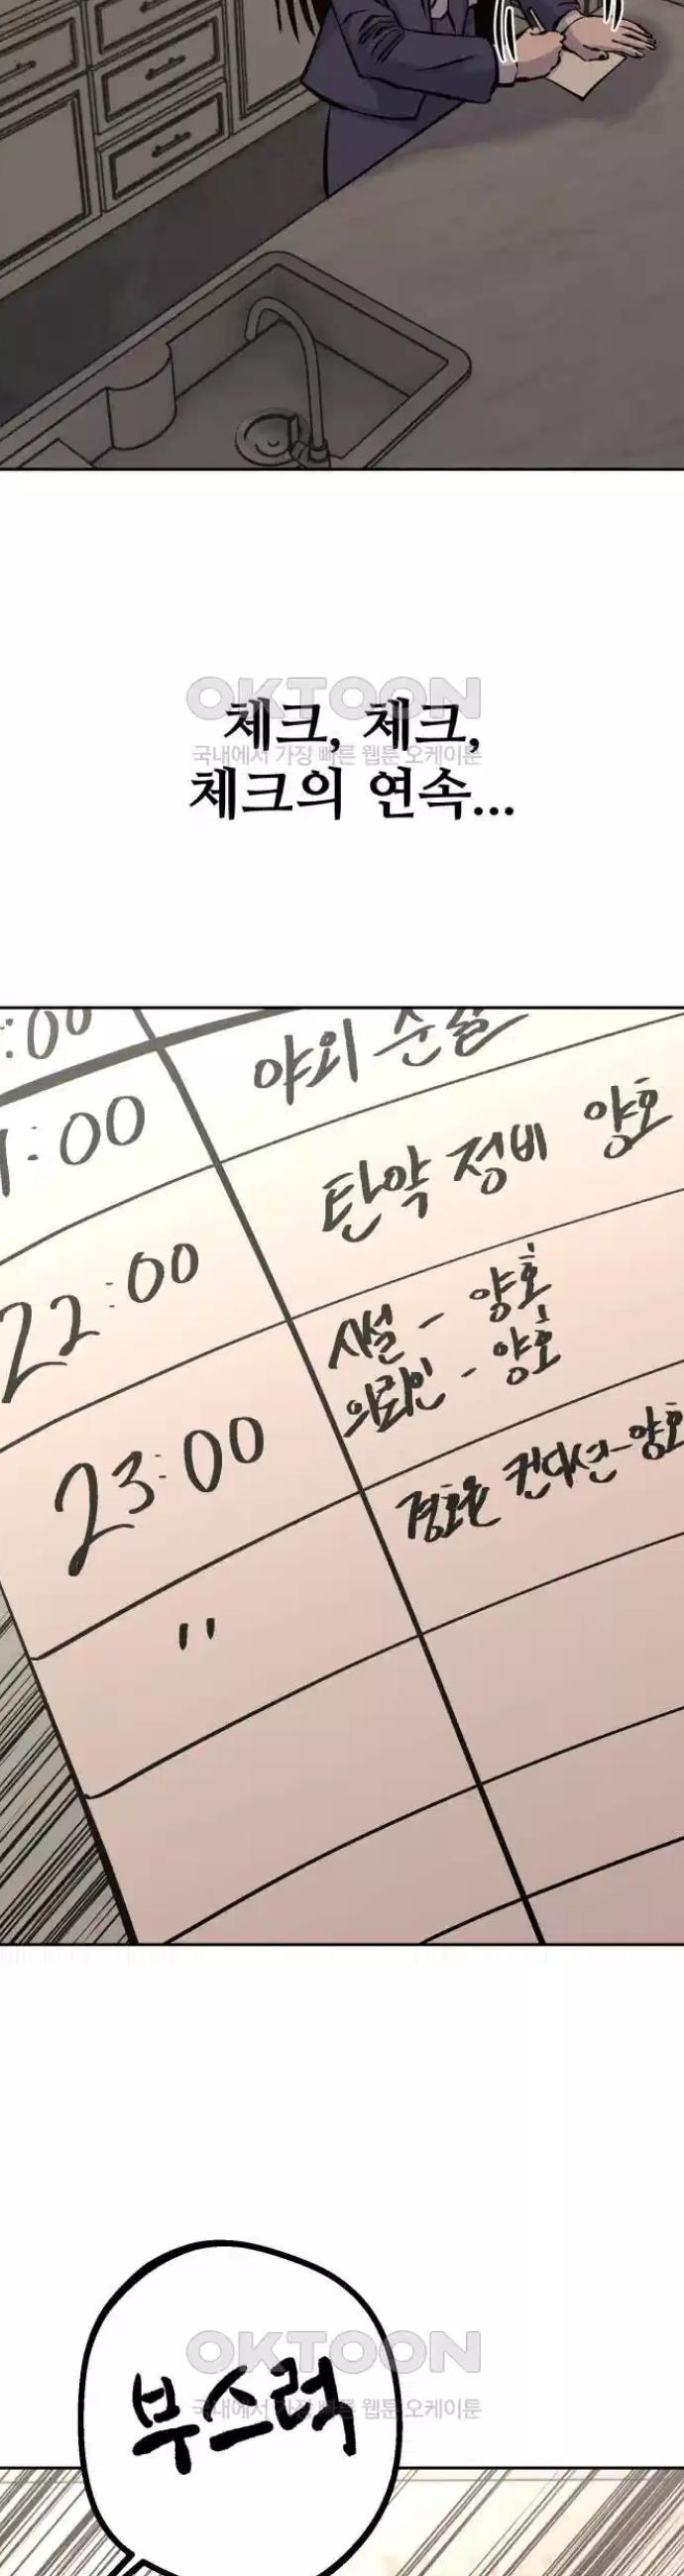 OKTOON
체크, 체크,
국내에서 가장 빠른 웹툰 오케이툰
체크의 연속...
:00 야외 순찰
1:00 탄약 정비 양호
22:00 시설 - 양호
의뢰인 - 양호
23:00 경호원 컨디션-양호
"
OKTOON
부스럭
국내에서 가장 빠른 웹툰 오케이툰